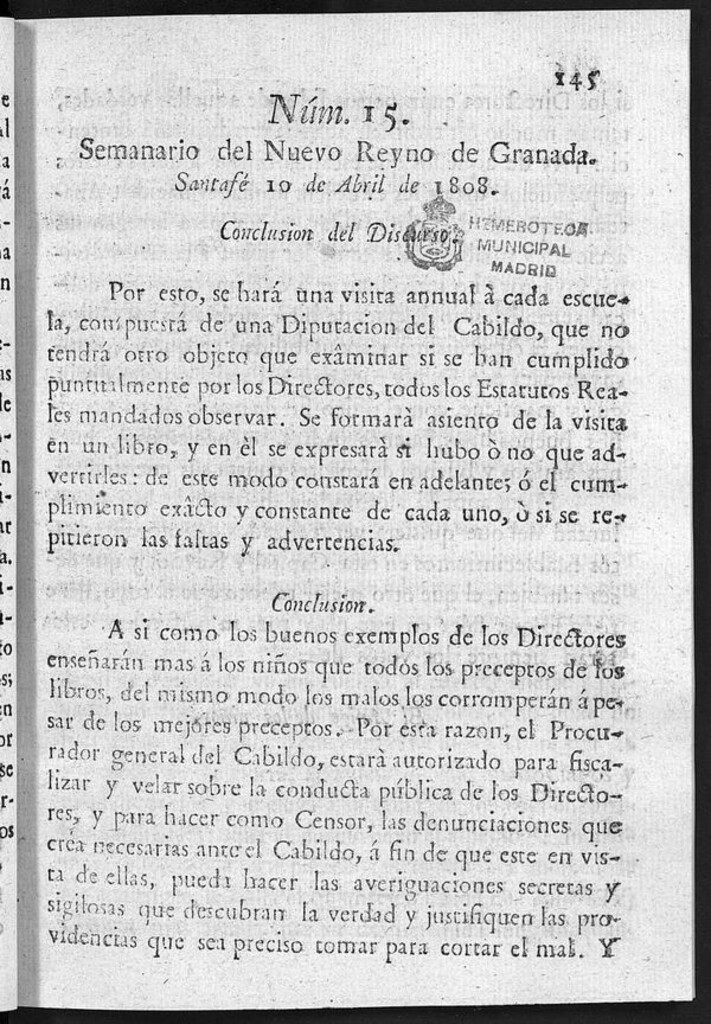 145
Núm. 15.
Semanario del Nuevo Reyno de Granada.
Santafé 10 de Abril de 1808.
Conclusion del Discurso.
HEMEROTECA
MUNICIPAL
MADRID
Por esto, se hará una visita annual à cada escue-
la, compuestá de una Diputacion del Cabildo, que no
tendrá otro objeto que exâminar si se han cumplido
puntualmente por los Directores, todos los Estatutos Rea-
les mandados observar. Se formarà asiento de la visita
en un libro, y en èl se expresarà si hubo ò no que ad-
vertirles: de este modo constará en adelante; ó el cum-
plimiento exâcto y constante de cada uno, ò si se re-
pitieron las faltas y advertencias.
Conclusion.
A si como los buenos exemplos de los Directores
enseñarán mas á los niños que todos los preceptos de los
libros, del mismo modo los malos los corromperán á pe-
sar de los mejores preceptos. Por esta razon, el Procu-
rador general del Cabildo, estarà autorizado para fisca-
lizar y velar sobre la conducta pública de los Directo-
res, y para hacer como Censor, las denunciaciones que
crea necesarias ante el Cabildo, á fin de que este en vis-
ta de ellas, pueda hacer las averiguaciones secretas y
sigilosas que descubran la verdad y justifiquen las pro-
videncias que sea preciso tomar para cortar el mal. Y